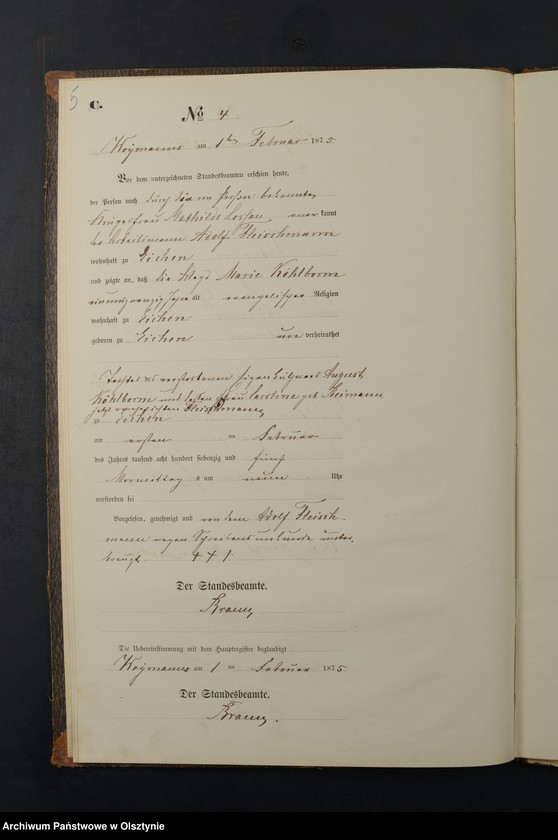 5
C.
No 4
am 1ten Februar 1875
Vor dem unterzeichneten Standesbeamten erschien heute,
der Person nach durch die von Person bekannte,
Mathilde aner kannt
der Arbeitsmann Adolf Fleischmann
wohnhaft zu Eichen
und zeigte an, daß die Magd Marie Köhlborn
einundzwanzig Jahre alt evangelischer Religion
wohnhaft zu Eichen
geboren zu Eichen un verheirathet
Tochter des verstorbenen Eigenkäthners August
Köhlborn und dessen Frau Caroline geb. Reimann
jetzt verehelichten Fleischmann,
zu Eichen
am ersten ten Februar
des Jahres tausend acht hundert siebenzig und fünf
Vormittag s um neun Uhr
verstorben sei
Vorgelesen, genehmigt und von dem Adolf Fleisch-
mann wegen Schreibensunkunde unter-
kreuzt. + + +
Der Standesbeamte.
Die Uebereinstimmung mit dem Hauptregister beglaubigt
am 1 ten Februar 1875
Der Standesbeamte.
Archiwum Państwowe w Olsztynie